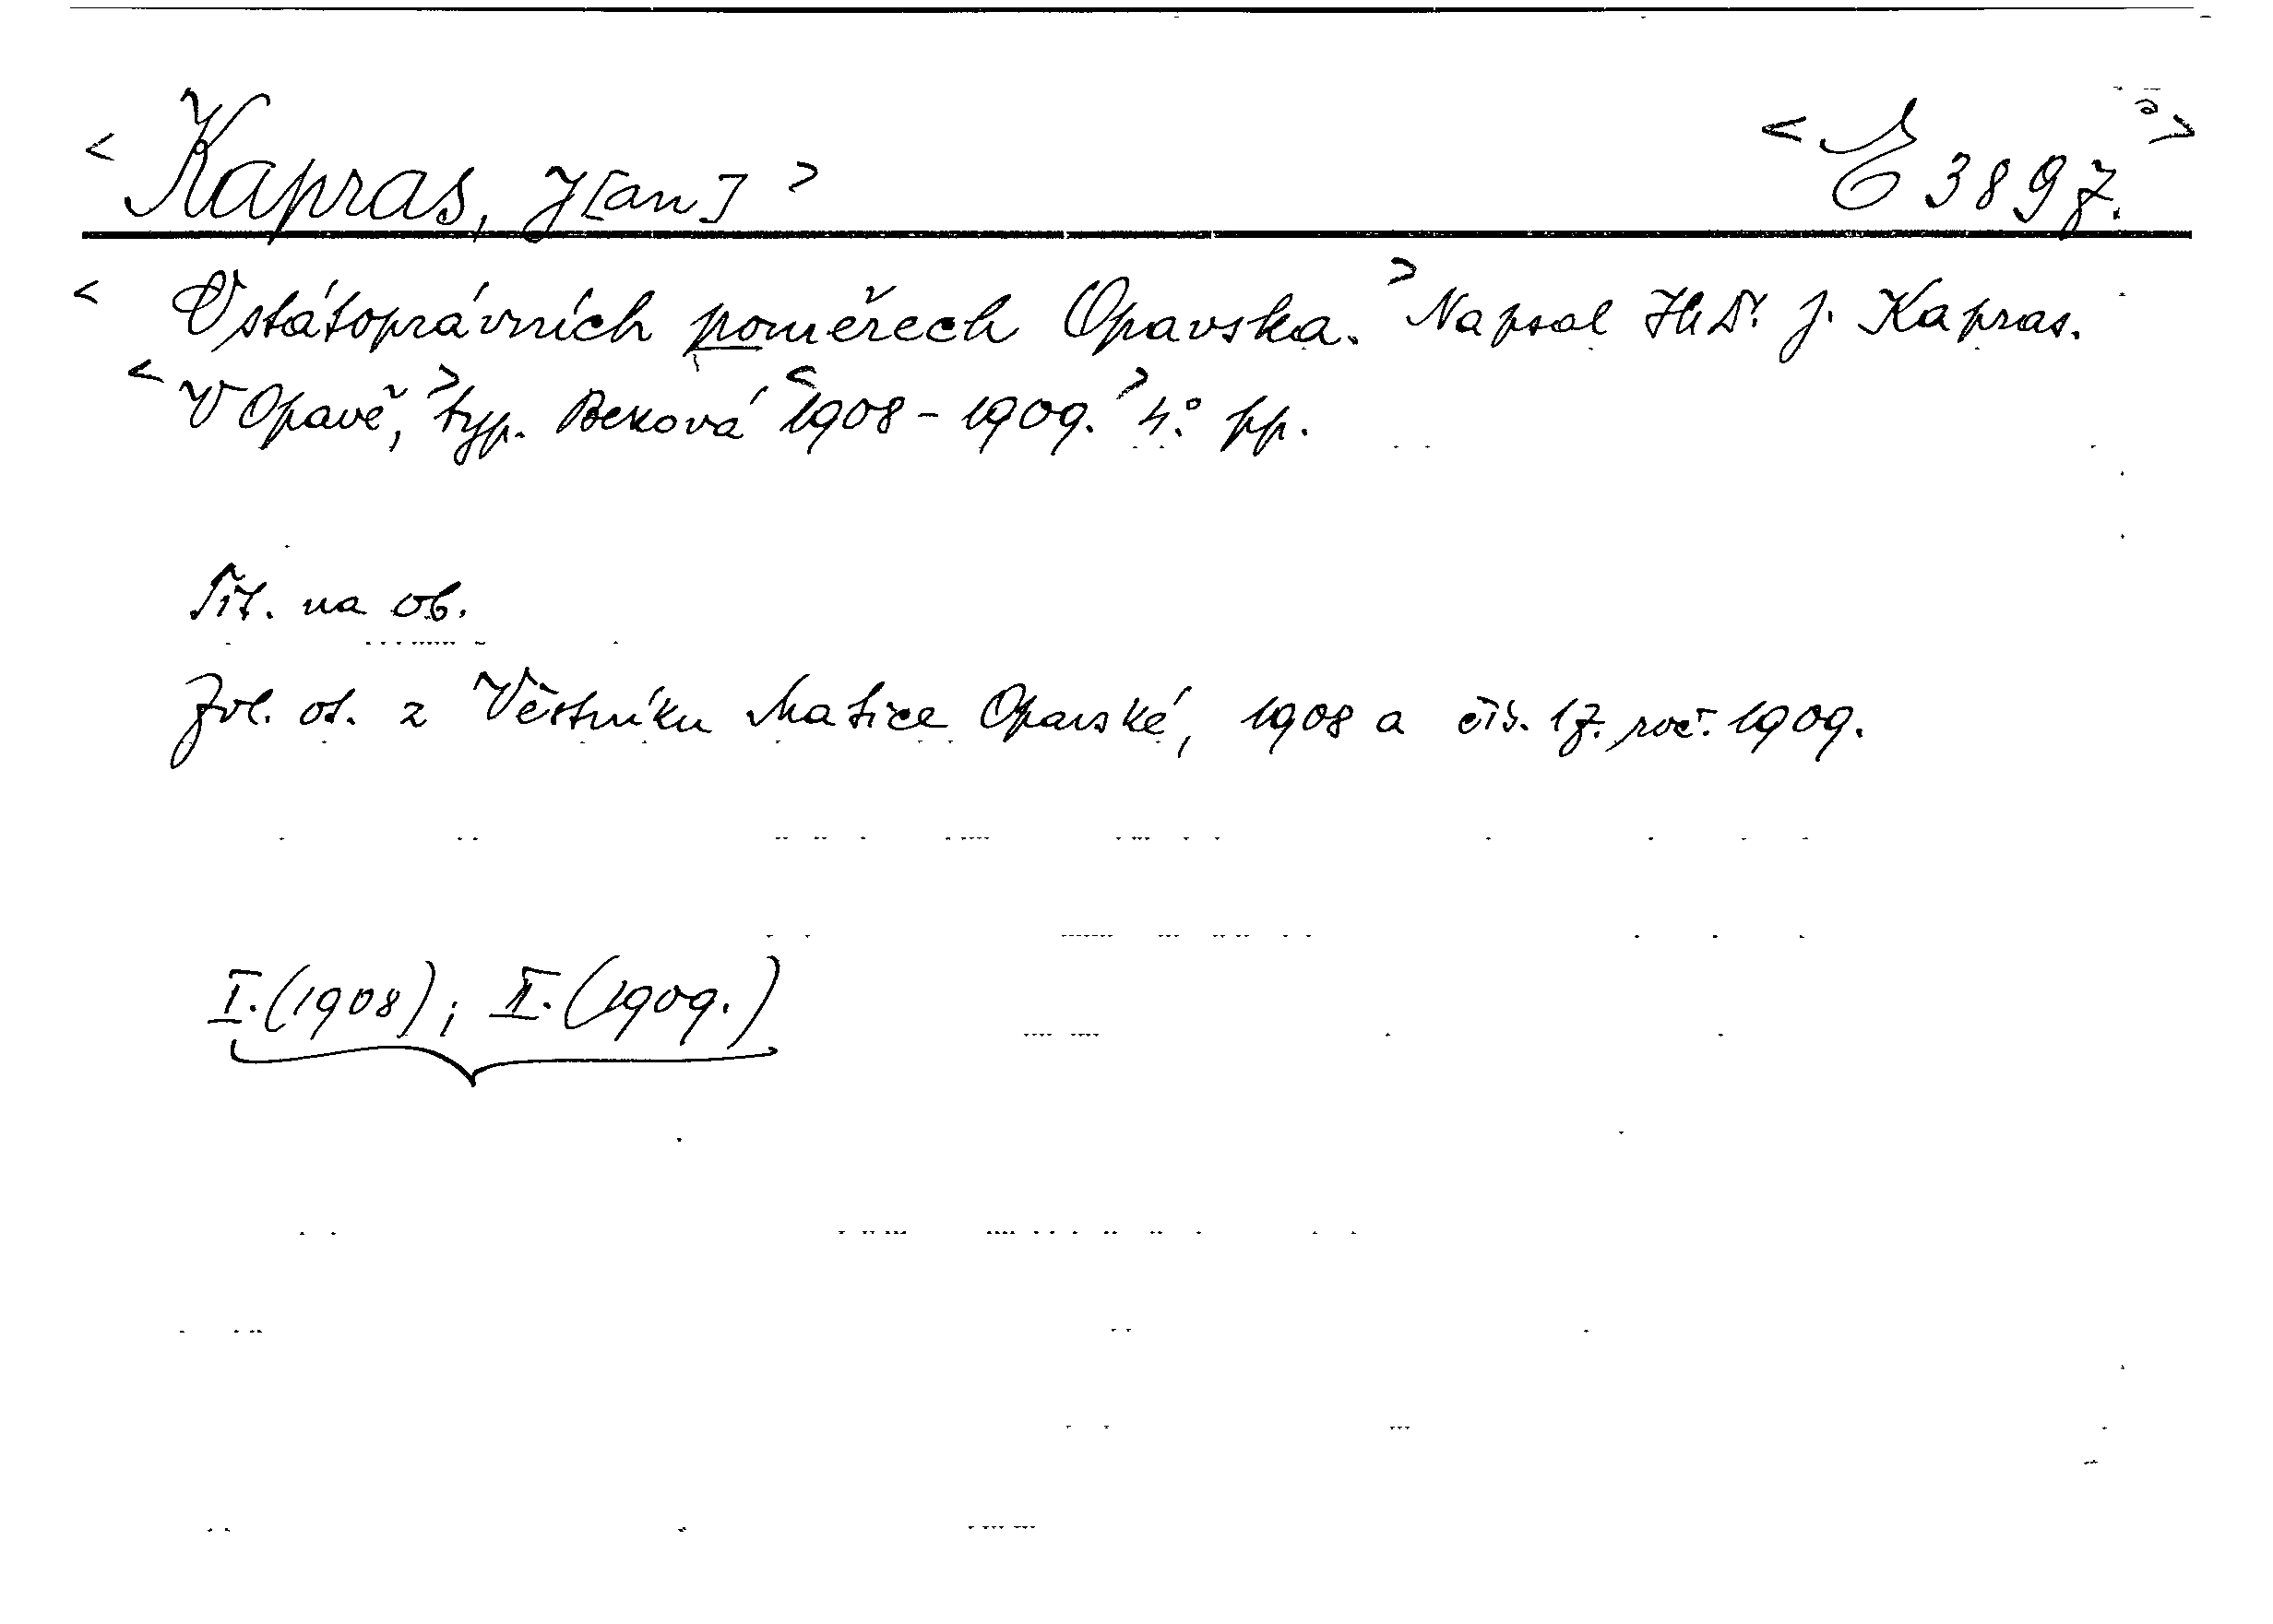 < Kapras, J[an] > < E 3897. >
< O státoprávních poměrech Opavska. > Napsal JUDr. J. Kapras.
< V Opavě, > typ. Beková < 1908-1909. > 4.° pp.
Tit. na ob.
Zvl. ot. z Věstníku Matice Opavské, 1908 a čís. 17. roč. 1909.
I. (1908); II. (1909.)